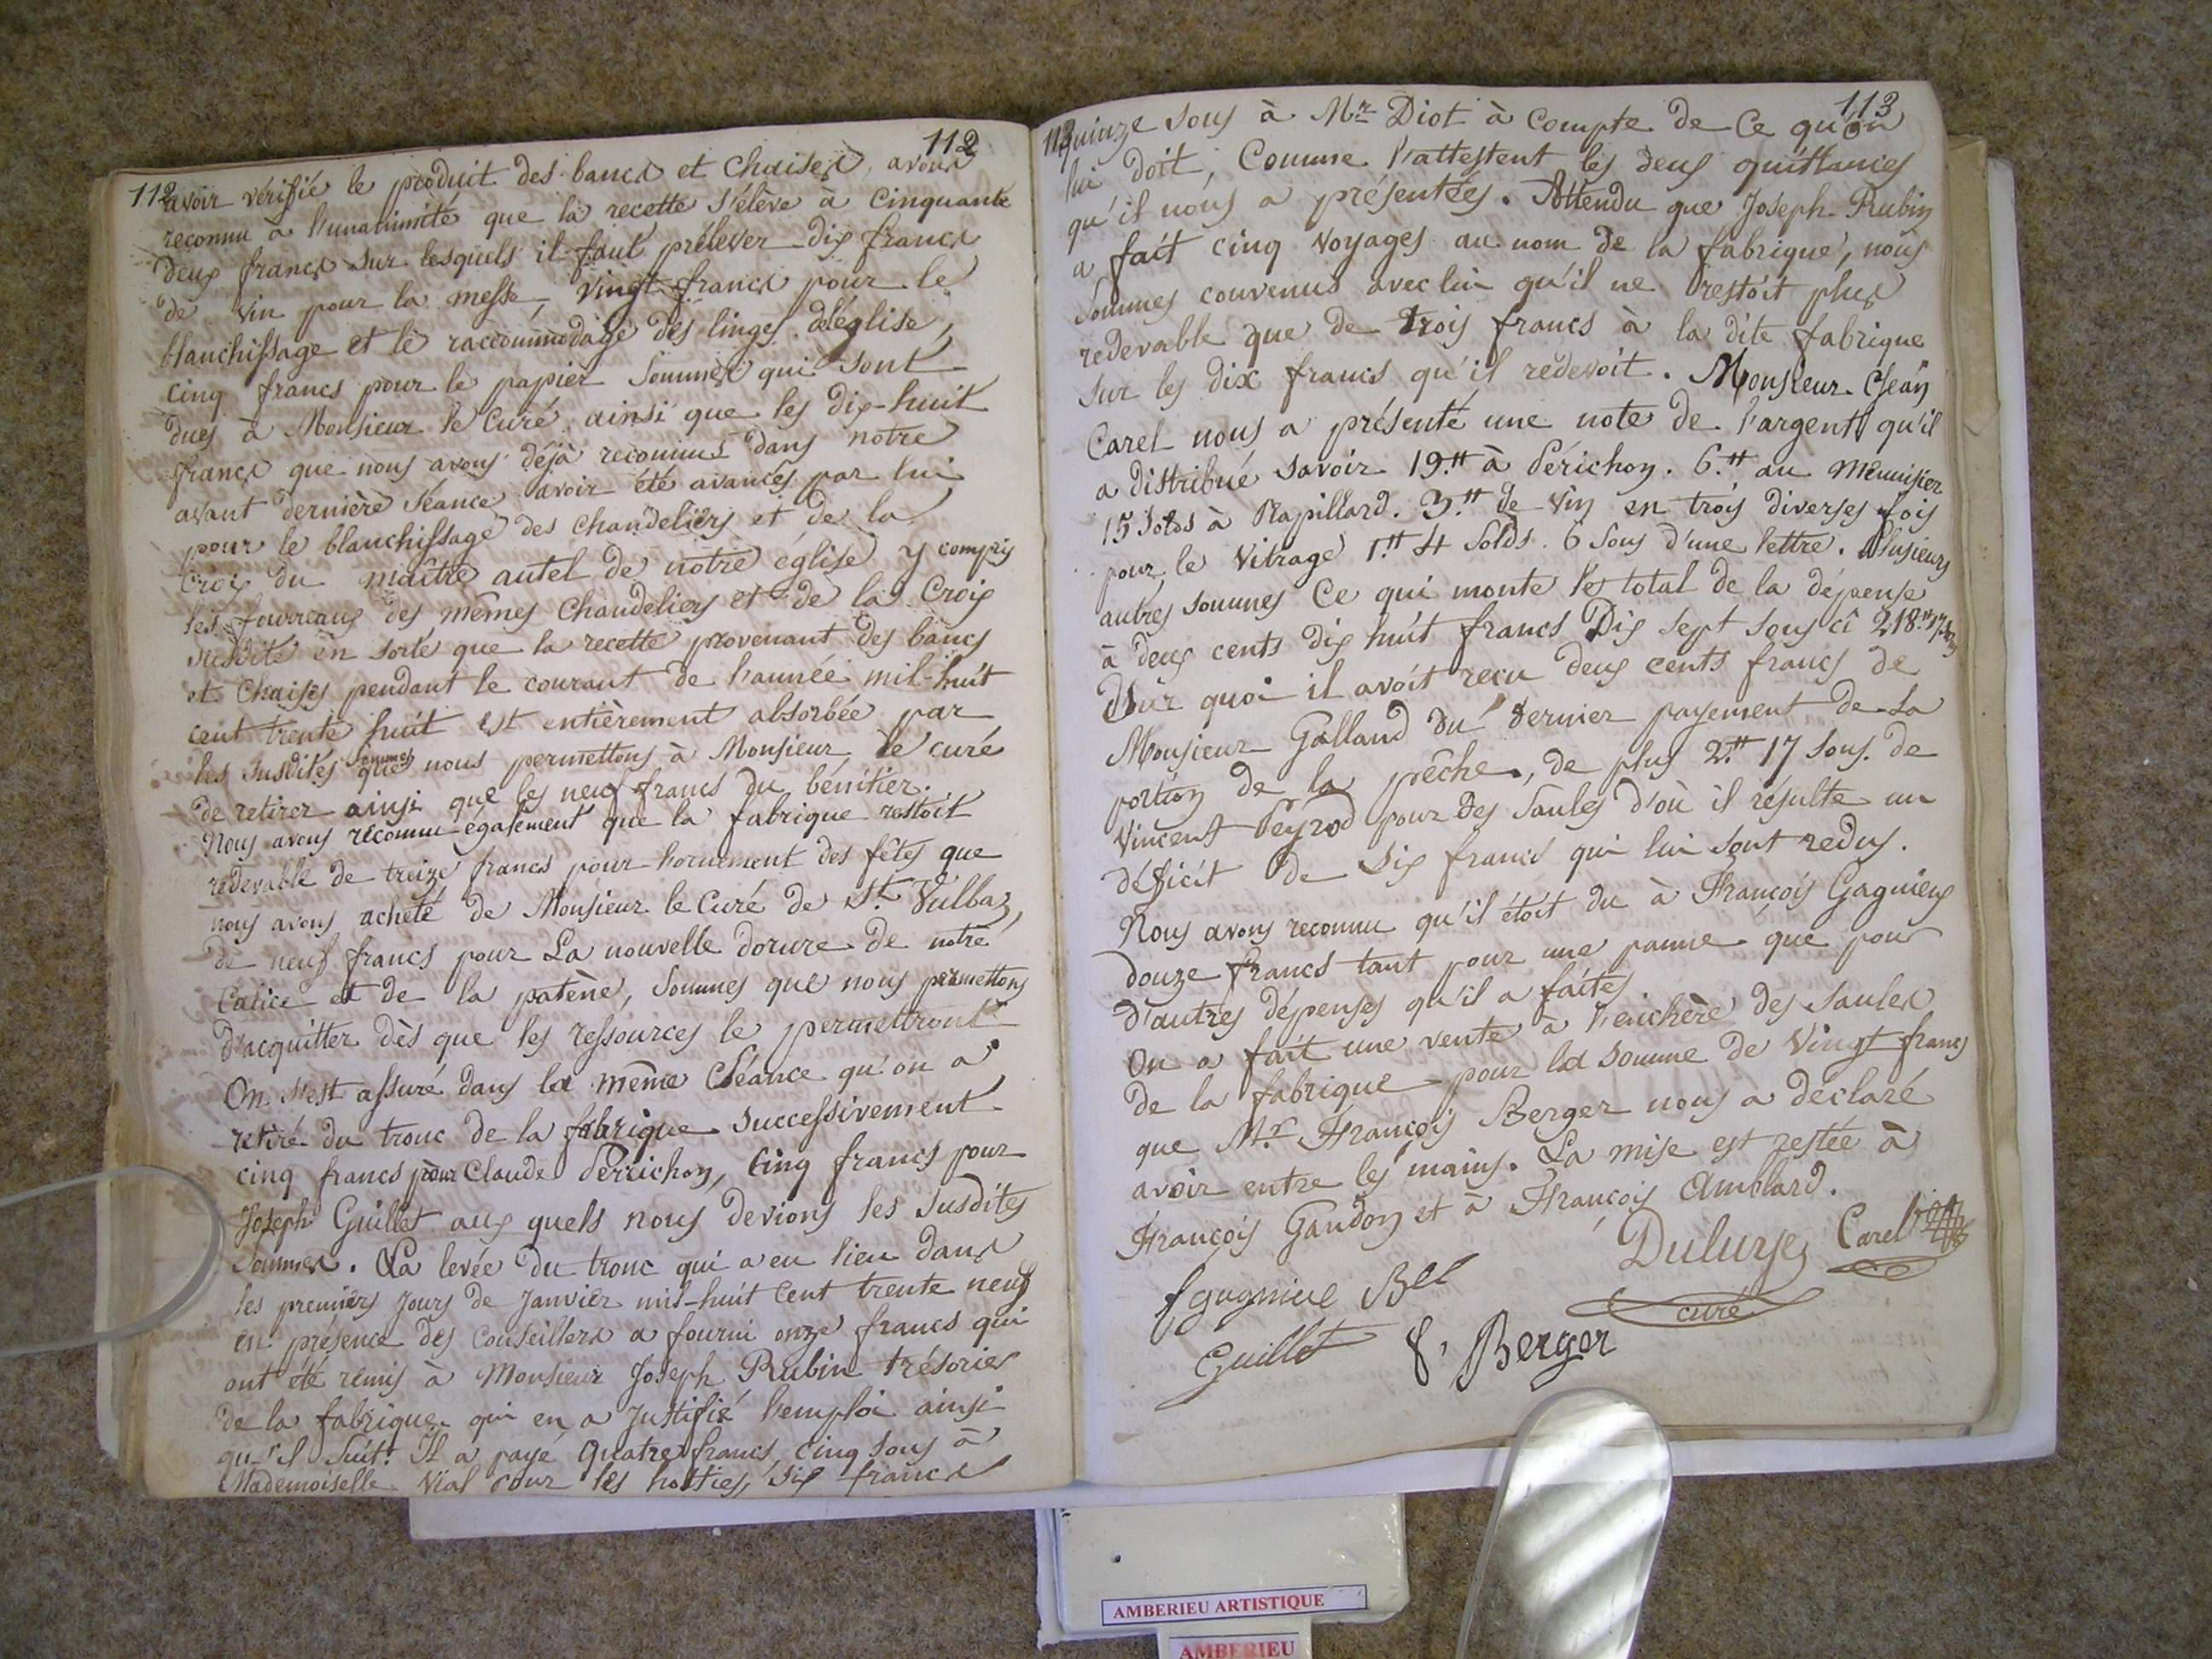 112
112
avoir vérifié le produit des bancs et chaises, avons
reconnu à l'unanimité que la recette s'élève à cinquante
deux francs sur lesquels il faut prélever dix francs
de vin pour la messe, vingt francs pour le
blanchissage et le raccommodage des linges de l'église,
cinq francs pour le papier sommes qui sont
dues à Monsieur le Curé ainsi que les dix-huit
francs que nous avons déjà reconnus dans notre
avant dernière séance avoir été avancés par lui
pour le blanchissage des chandeliers et de la
croix du maître autel de notre église y compris
les fourreaux des mêmes chandeliers et de la croix
susdite en sorte que la recette provenant des bancs
et chaises pendant le courant de l'année mil-huit
cent trente huit est entièrement absorbée par
les susdites sommes que nous permettons à Monsieur le curé
de retirer ainsi que les neuf francs du bénitier.
Nous avons reconnu également que la fabrique restoit
redevable de treize francs pour l'ornement des fêtes que
nous avons acheté de Monsieur le Curé de St. Vulbaz,
de neuf francs pour La nouvelle dorure de notre
calice et de la patène, sommes que nous permettons
d'acquitter dès que les ressources le permettront
On s'est assuré dans la même Séance qu'on a
retiré du tronc de la fabrique successivement
cinq francs pour Claude Perrichon, cinq francs pour
Joseph Guillet aux quels nous devions les susdites
sommes. La levée du tronc qui a eu lieu dans
les premiers jours de Janvier mil-huit cent trente neuf
en présence des conseillers a fourni onze francs qui
ont été remis à Monsieur Joseph Rubin trésorier
de la fabrique qui en a justifié l'emploi ainsi
qu'il suit. Il a payé quatre francs cinq sous à
Mademoiselle Vial pour les hosties, six francs
113
113
quinze sous à Mr Diot à compte de ce qu'on
lui doit, comme l'attestent les deux quittances
qu'il nous a présentées. Attendu que Joseph Rubin
a fait cinq voyages au nom de la fabrique, nous
sommes convenus avec lui qu'il ne restoit plus
redevable que de trois francs à la dite fabrique
sur les dix francs qu'il redevoit. Monsieur Jean
Carel nous a présenté une note de l'argent qu'il
a distribué savoir 19.tt à Périchon. 6.tt au Menuisier
15 solds à Rapillard. 3.tt de vin en trois diverses fois
pour le vitrage 1.tt 4 solds. 6 sous d'une lettre. Plusieurs
autres sommes ce qui monte le total de la dépense
à deux cents dix huit francs Dix sept sous ci 218.tt 17
Sur quoi il avoit reçu deux cents francs de
Monsieur Galland du dernier payement de sa
portion de la pêche, de plus 2.tt 17 sous de
Vincent Peyrod pour des saules d'où il résulte un
déficit de six francs qui lui sont redus.
Nous avons reconnu qu'il étoit du à François Gagnieux
douze francs tant pour une panne que pour
d'autres dépenses qu'il a faites.
On a fait une vente à l'enchère des saules
de la fabrique pour la somme de vingt francs
que Mr. François Berger nous a déclaré
avoir entre les mains. La mise est restée à
François Gandon et à François Amblard.
Carel
f gagniere Bel
curé
Guillet f. Berger
AMBERIEU ARTISTIQUE
AMBERIEU